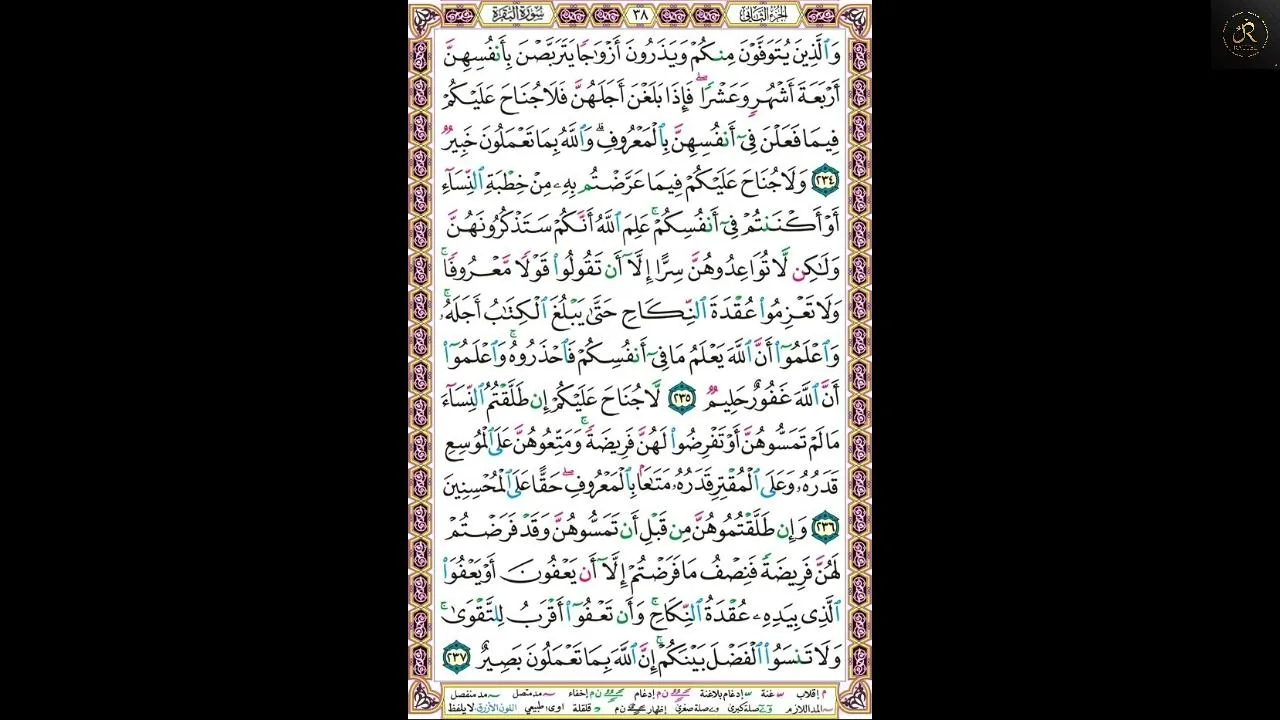 الجزء الثاني ٣٨ سورة البقرة
وَٱلَّذِينَ يُتَوَفَّوْنَ مِنكُمْ وَيَذَرُونَ أَزْوَٰجًا يَتَرَبَّصْنَ بِأَنفُسِهِنَّ
أَرْبَعَةَ أَشْهُرٍ وَعَشْرًا ۖ فَإِذَا بَلَغْنَ أَجَلَهُنَّ فَلَا جُنَاحَ عَلَيْكُمْ
فِيمَا فَعَلْنَ فِىٓ أَنفُسِهِنَّ بِٱلْمَعْرُوفِ ۗ وَٱللَّهُ بِمَا تَعْمَلُونَ خَبِيرٌ
٢٣٤ وَلَا جُنَاحَ عَلَيْكُمْ فِيمَا عَرَّضْتُم بِهِۦ مِنْ خِطْبَةِ ٱلنِّسَآءِ
أَوْ أَكْنَنتُمْ فِىٓ أَنفُسِكُمْ ۚ عَلِمَ ٱللَّهُ أَنَّكُمْ سَتَذْكُرُونَهُنَّ
وَلَٰكِن لَّا تُوَاعِدُوهُنَّ سِرًّا إِلَّآ أَن تَقُولُوا۟ قَوْلًا مَّعْرُوفًا ۚ
وَلَا تَعْزِمُوا۟ عُقْدَةَ ٱلنِّكَاحِ حَتَّىٰ يَبْلُغَ ٱلْكِتَٰبُ أَجَلَهُۥ ۚ
وَٱعْلَمُوٓا۟ أَنَّ ٱللَّهَ يَعْلَمُ مَا فِىٓ أَنفُسِكُمْ فَٱحْذَرُوهُ ۚ وَٱعْلَمُوٓا۟
أَنَّ ٱللَّهَ غَفُورٌ حَلِيمٌ ٢٣٥ لَّا جُنَاحَ عَلَيْكُمْ إِن طَلَّقْتُمُ ٱلنِّسَآءَ
مَا لَمْ تَمَسُّوهُنَّ أَوْ تَفْرِضُوا۟ لَهُنَّ فَرِيضَةً ۚ وَمَتِّعُوهُنَّ عَلَى ٱلْمُوسِعِ
قَدَرُهُۥ وَعَلَى ٱلْمُقْتِرِ قَدَرُهُۥ مَتَٰعًۢا بِٱلْمَعْرُوفِ ۖ حَقًّا عَلَى ٱلْمُحْسِنِينَ
٢٣٦ وَإِن طَلَّقْتُمُوهُنَّ مِن قَبْلِ أَن تَمَسُّوهُنَّ وَقَدْ فَرَضْتُمْ
لَهُنَّ فَرِيضَةً فَنِصْفُ مَا فَرَضْتُمْ إِلَّآ أَن يَعْفُونَ أَوْ يَعْفُوَا۟
ٱلَّذِى بِيَدِهِۦ عُقْدَةُ ٱلنِّكَاحِ ۚ وَأَن تَعْفُوٓا۟ أَقْرَبُ لِلتَّقْوَىٰ ۚ
وَلَا تَنسَوُا۟ ٱلْفَضْلَ بَيْنَكُمْ ۚ إِنَّ ٱللَّهَ بِمَا تَعْمَلُونَ بَصِيرٌ ٢٣٧
م إقلاب غنة إدغام بلاغنة ن م إدغام ن م إخفاء مد متصل مد منفصل
المد اللازم صلة كبرى صلة صغرى إظهار ن م قلقلة اوى، طبيعي اللون الأزرق لا يلفظ